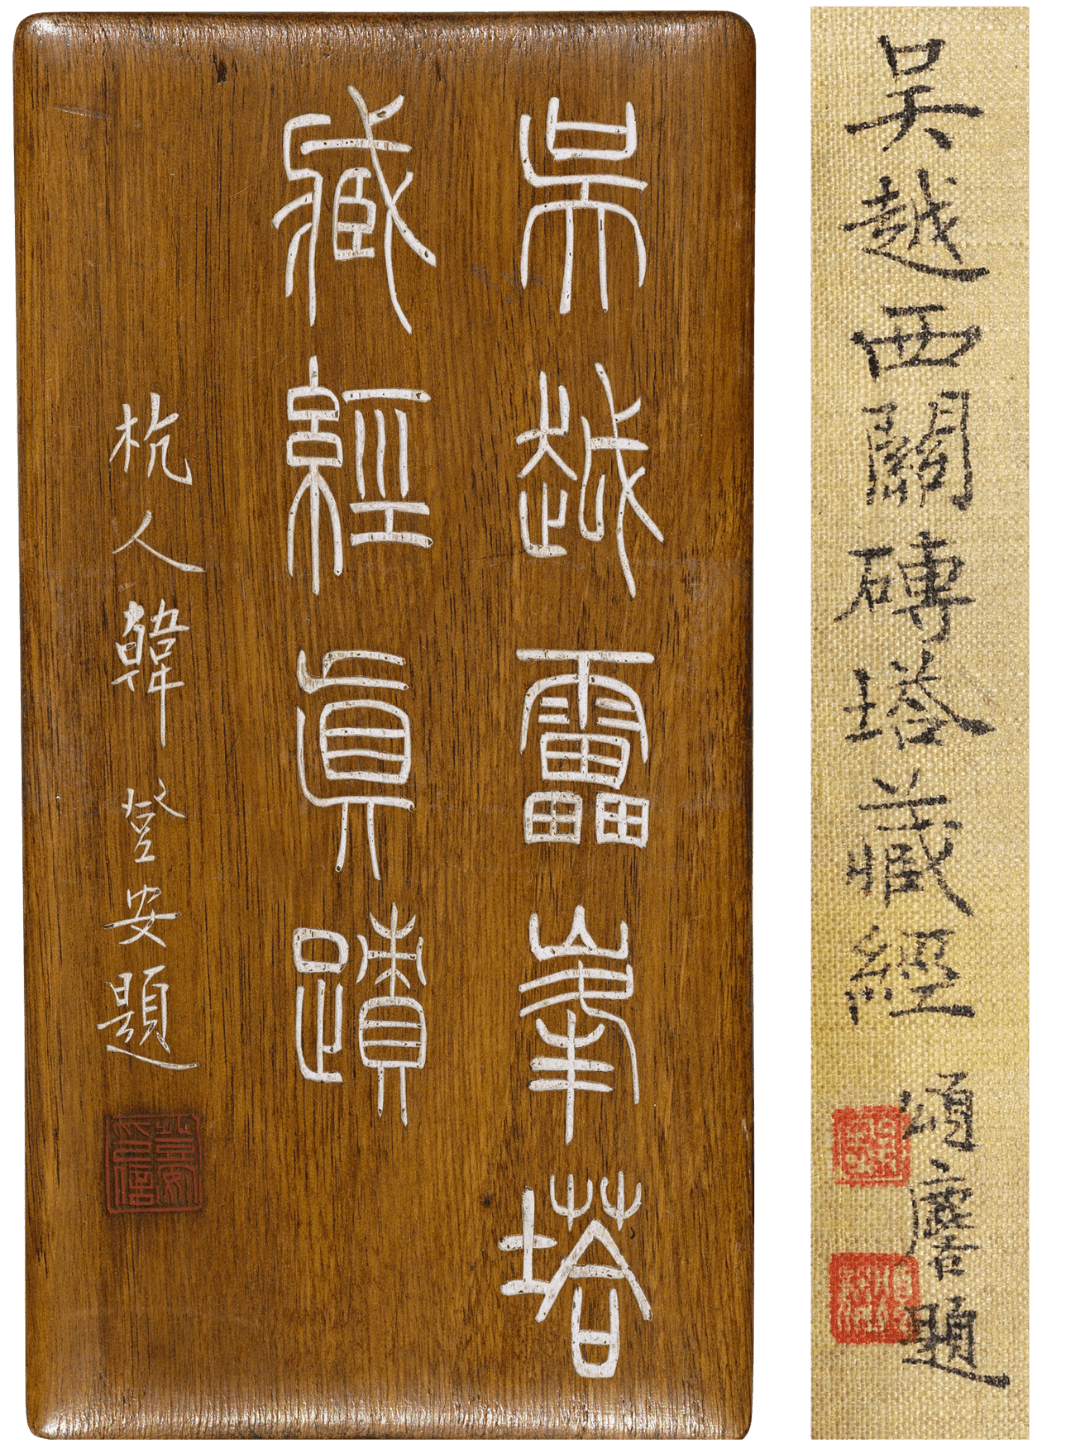 吳越靁峯塔
藏經眞蹟
杭人韓登安題
吳越西關磚塔藏經
頌題